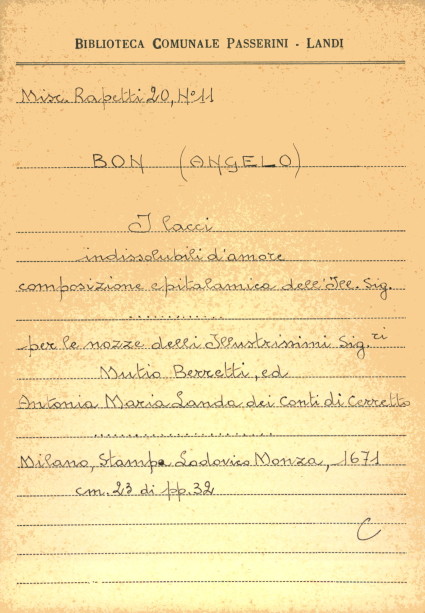 BIBLIOTECA COMUNALE PASSERINI - LANDI
Misc. Rapetti 20, N° 11
BON (ANGELO)
I lacci
indissolubili d'amore
composizione epitalamica dell'Ill. Sig.
.............
per le nozze delli Illustrissimi Sig.ri
Mutio Berretti, ed
Antonia Maria Landa dei Conti di Cerretto
........................
Milano, Stampa Lodovico Monza, 1671
cm. 23 di pp. 32
C